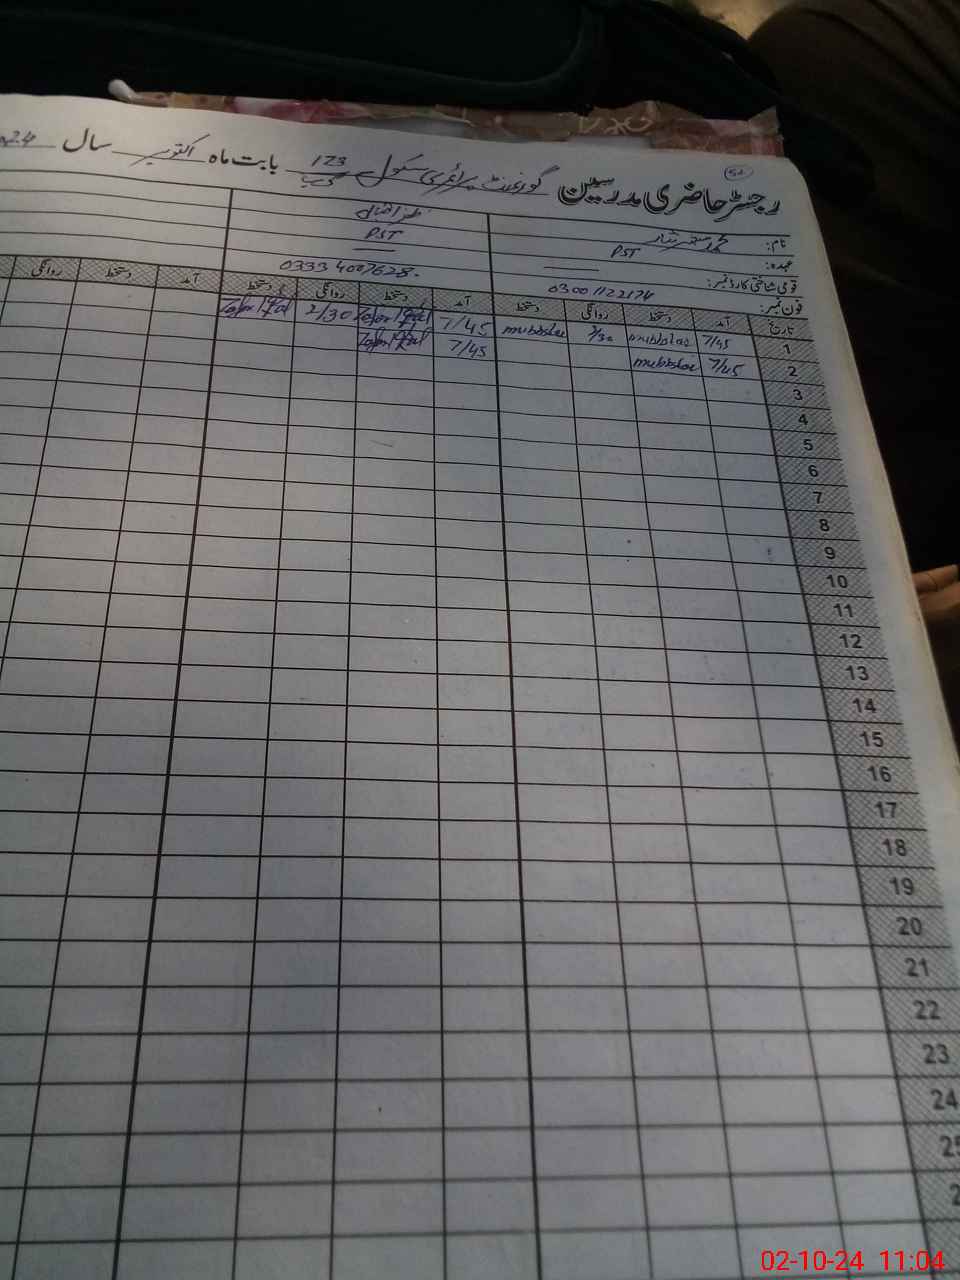 رجسٹر حاضری مدرسین گورنمنٹ پرائمری سکول 123 بابت ماہ اکتوبر سال
نام: محمد مبشر نثار ظفر اقبال
عہدہ: PST PST
قومی شناختی کارڈ نمبر:
فون نمبر: 03001122174 03334007628
تاریخ آمد دستخط روانگی دستخط آمد دستخط روانگی دستخط آمد دستخط روانگی
1 7/45 mubbslar 2/30 mubbslar 7/45 Zafar Iqbal 2/30 Zafar Iqbal
2 7/45 mubbslar 7/45 Zafar Iqbal
3
4
5
6
7
8
9
10
11
12
13
14
15
16
17
18
19
20
21
22
23
24
02-10-24 11:04